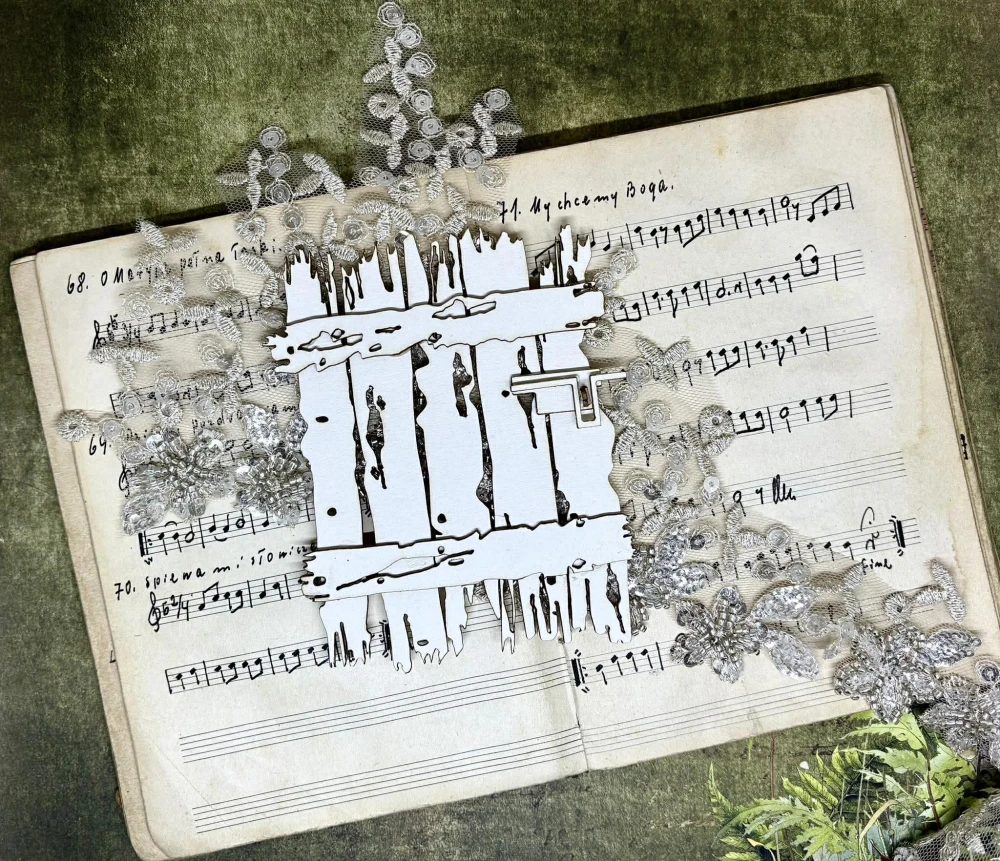 68. O Maryjo pełna łaski
69.
pozdrawiam
70. Śpiewa mi słowicze
71. My chcemy Boga.
fine